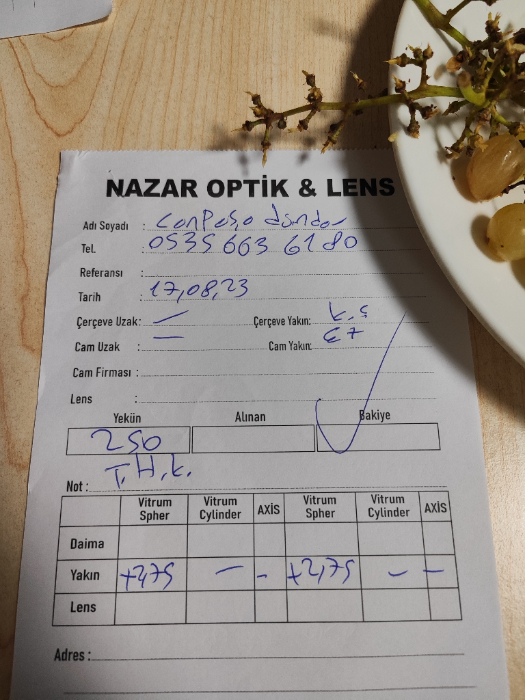 NAZAR OPTİK & LENS
Adı Soyadı : Canpaşa dündar
Tel. : 0535 663 61 80
Referansı :
Tarih : 17,08,23
Çerçeve Uzak: — Çerçeve Yakın: k.ç
Cam Uzak : — Cam Yakın:
Cam Firması :
Lens :
Yekün Alınan Bakiye
250
T.H.k.
Not :
Vitrum Spher Vitrum Cylinder AXİS Vitrum Spher Vitrum Cylinder AXİS
Daima
Yakın +2,75 — – +2,75 — —
Lens
Adres :